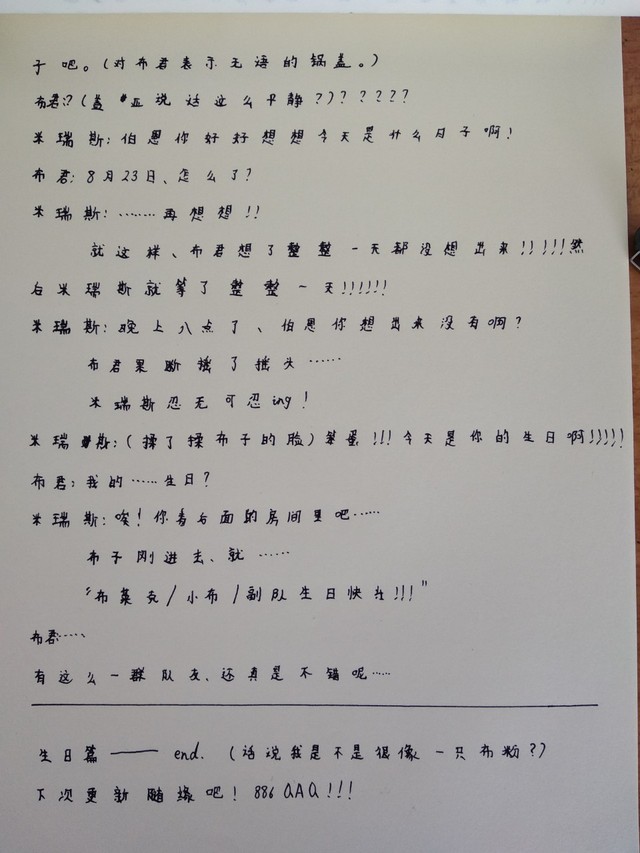 子吧。(对布君表示无语的锅盖。)
布君:?(盖亚说话这么平静?)?????
米瑞斯:伯恩你好好想想今天是什么日子啊!
布君:8月23日、怎么了?
米瑞斯:………再想想!!
就这样、布君想了整整一天都没想出来!!!!!然
后米瑞斯就等了整整一天!!!!!!
米瑞斯:晚上八点了、伯恩你想出来没有啊?
布君果断摇了摇头……
米瑞斯忍无可忍ing!
米瑞斯:(揉了揉布子的脸)笨蛋!!!今天是你的生日啊!!!!!
布君:我的……生日?
米瑞斯:唉!你看右面的房间里吧……
布子刚进去、就……
“布莱克/小布/副队生日快乐!!!”
布君……
有这么一群队友、还真是不错呢……
生日篇——end.(话说我是不是很像一只布粉?)
下次更新随缘吧!886QAQ!!!